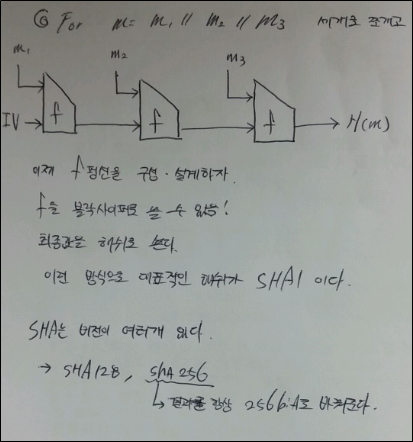 ⑥ For m = m₁ // m₂ // m₃ 세개로 쪼개고
m₁ m₂ m₃
IV f f f H(m)
이제 f 펑션을 구성·설계하자.
f을 블락사이퍼로 쓸 수 있음!
최종값을 해쉬로 쓴다.
이런 방식으로 대표적인 해쉬가 SHA1 이다.
SHA는 버전이 여러개 있다.
→ SHA128, SHA256
결과를 항상 256bit로 바꿔준다.